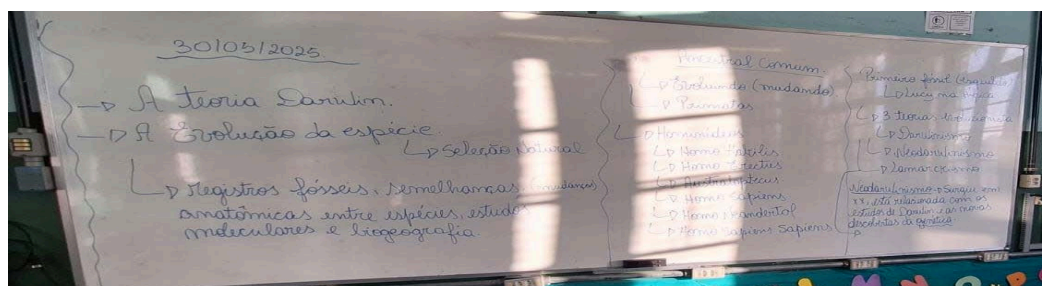 30/05/2025
→ A teoria Darwin.
→ A Evolução da espécie
↳ Seleção Natural
↳ registros fósseis, semelhanças (mudanças)
anatômicas entre espécies, estudos
moleculares e biogeografia.
Ancestral Comum.
↳ Evoluindo (mudando)
↳ Primatas
↳ Hominídeos
↳ Homo Habilis
↳ Homo Erectus
↳ Homo Sapiens
↳ Homo Neandertal
↳ Homo Sapiens Sapiens
Primeiro fóssil (esqueleto)
↳ Lucy na África
↳ 3 teorias evolucionista
↳ Darwinismo
↳ Neodarwinismo
↳ Lamarckismo
Neodarwinismo → Surgiu em
XX, está relacionada com os
estudos de Darwin e as novas
descobertas da genética